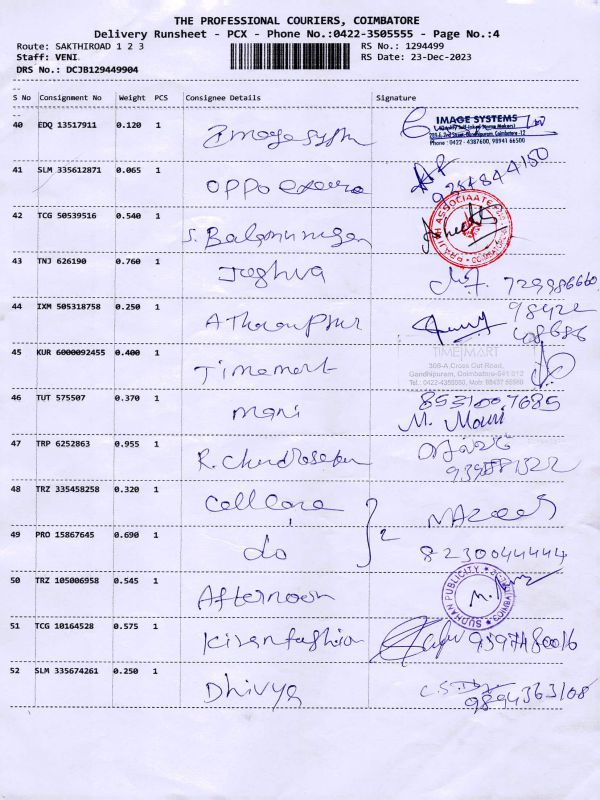 THE PROFESSIONAL COURIERS, COIMBATORE
Delivery Runsheet - PCX - Phone No.:0422-3505555 - Page No.:4
Route: SAKTHIROAD 1 2 3 RS No.: 1294499
Staff: VENI RS Date: 23-Dec-2023
DRS No.: DCJB129449904
S No Consignment No Weight PCS Consignee Details Signature
40 EDQ 13517911 0.120 1 Image system IMAGE SYSTEMS
Phone : 0422 - 4387600, 98941 66500
41 SLM 335612871 0.065 1 Oppo
42 TCG 50539516 0.540 1 S. Balamurugan
43 TNJ 626190 0.760 1 729986660
44 IXM 505318758 0.250 1 98422
45 KUR 6000092455 0.400 1 Timemart TIME MART
Gandhipuram, Coimbatore-641 012
46 TUT 575507 0.370 1 mani 8531007685
M. Mani
47 TRP 6252863 0.955 1 R. Chandrasekar
48 TRZ 335458258 0.320 1 Cellcare 2
49 PRO 15867645 0.690 1 do 8230044444
50 TRZ 105006958 0.545 1 Afternoon SUDHAN PUBLICITY
51 TCG 10164528 0.575 1 Kiran fashion 9597480016
52 SLM 335674261 0.250 1 Dhivya 9894363108